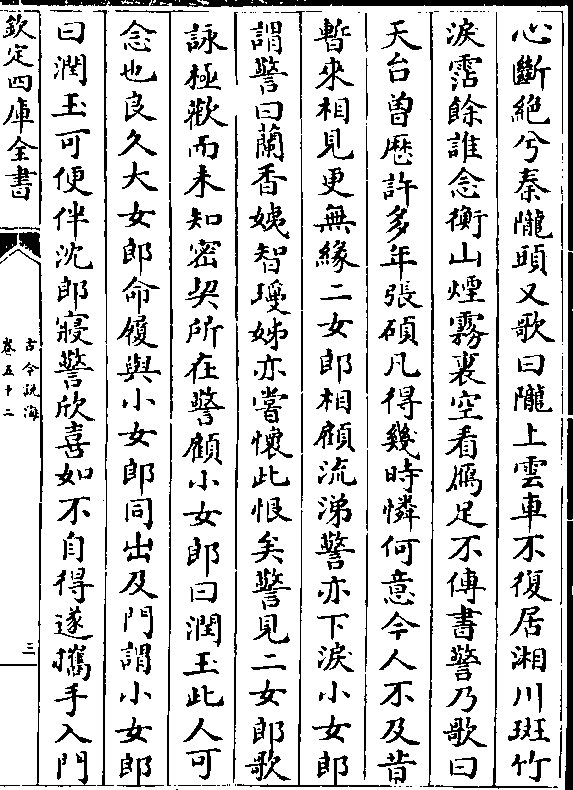 心斷絶兮秦隴頭又歌曰隴上雲車不復居湘川斑竹
淚霑餘誰念衡山煙霧裏空看鴈足不傳書警乃歌曰
天台曽歴許多年張碩凡得幾時憐何意今人不及昔
暫來相見更無緣二女郎相顧流涕警亦下淚小女郎
謂警曰蘭香姨智瓊姊亦嘗懷此恨矣警見二女郎歌
詠極歡而未知密契所在警顧小女郎曰潤玉此人可
念也良久大女郎命履與小女郎同出及門謂小女郎
曰潤玉可便伴沈郎寢警欣喜如不自得遂攜手入門
欽定四庫全書
古今說海
卷五十二
三